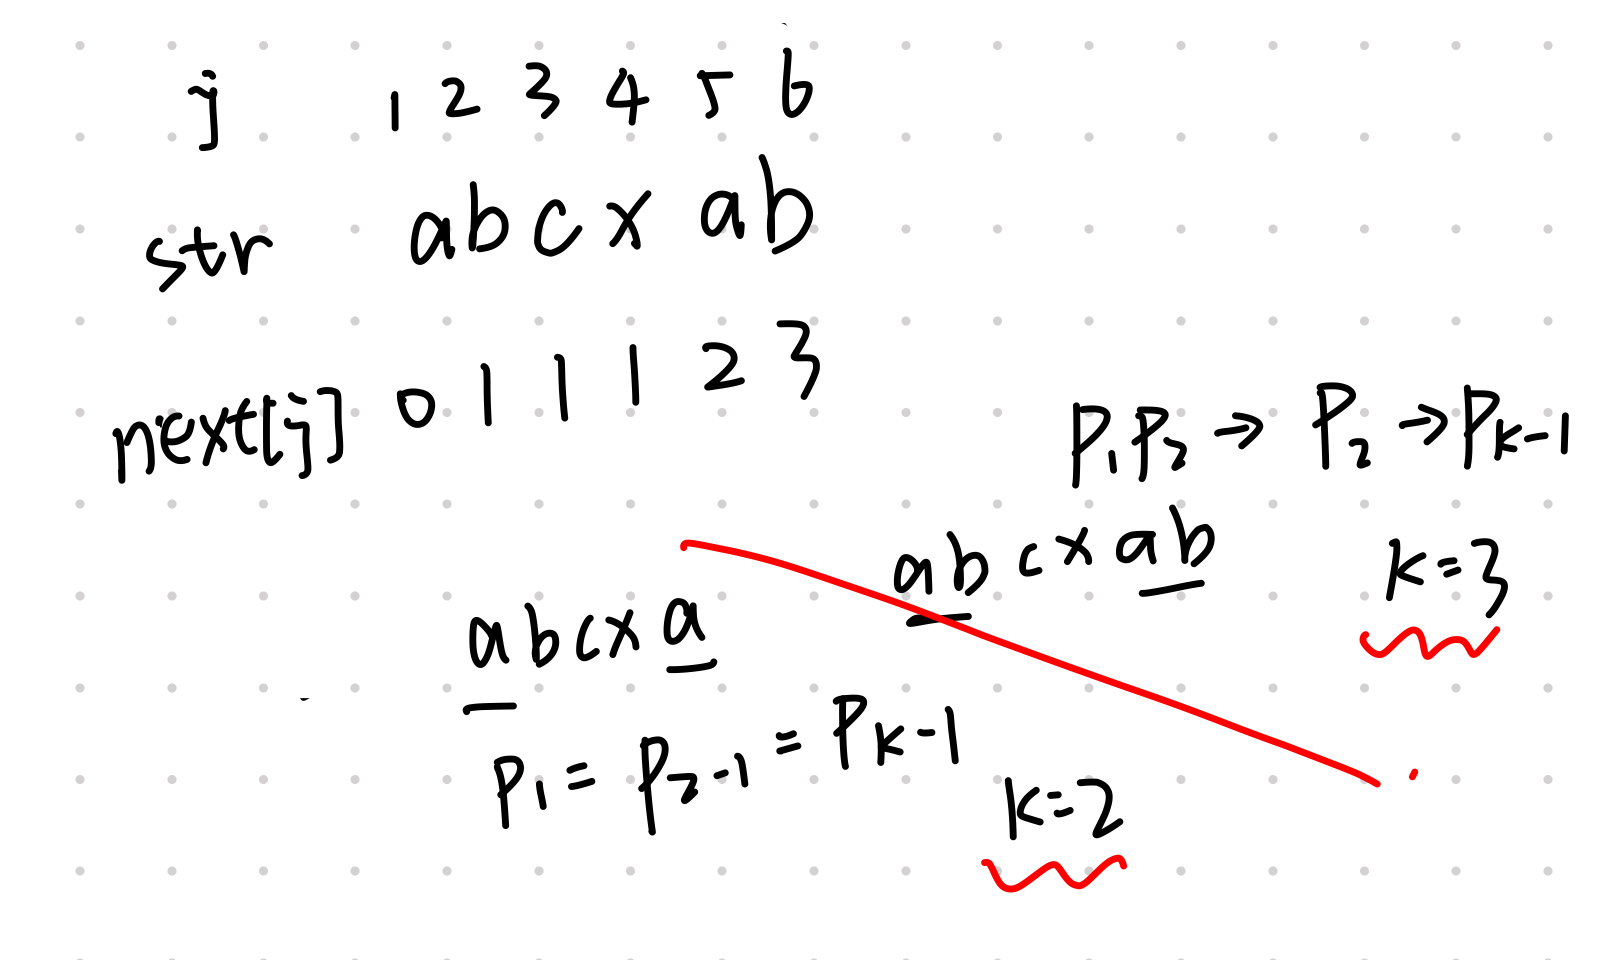 j 1 2 3 4 5 6
str a b c x a b
next[j] 0 1 1 1 2 3
P₁P₂ → P₂ → Pₖ₋₁
abcxab k=3
abcxa
P₁ = P₂₋₁ = Pₖ₋₁
k=2